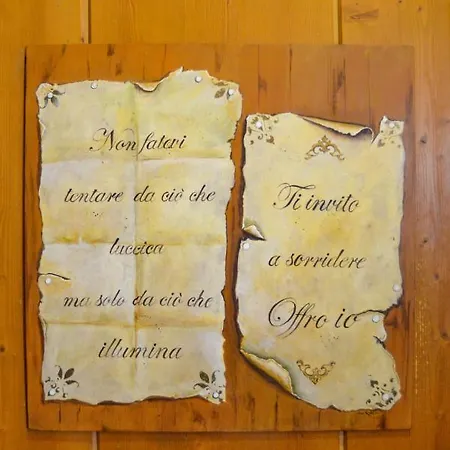 Non fatevi
tentare da ciò che
luccica
ma solo da ciò che
illumina
Ti invito
a sorridere
Offro io